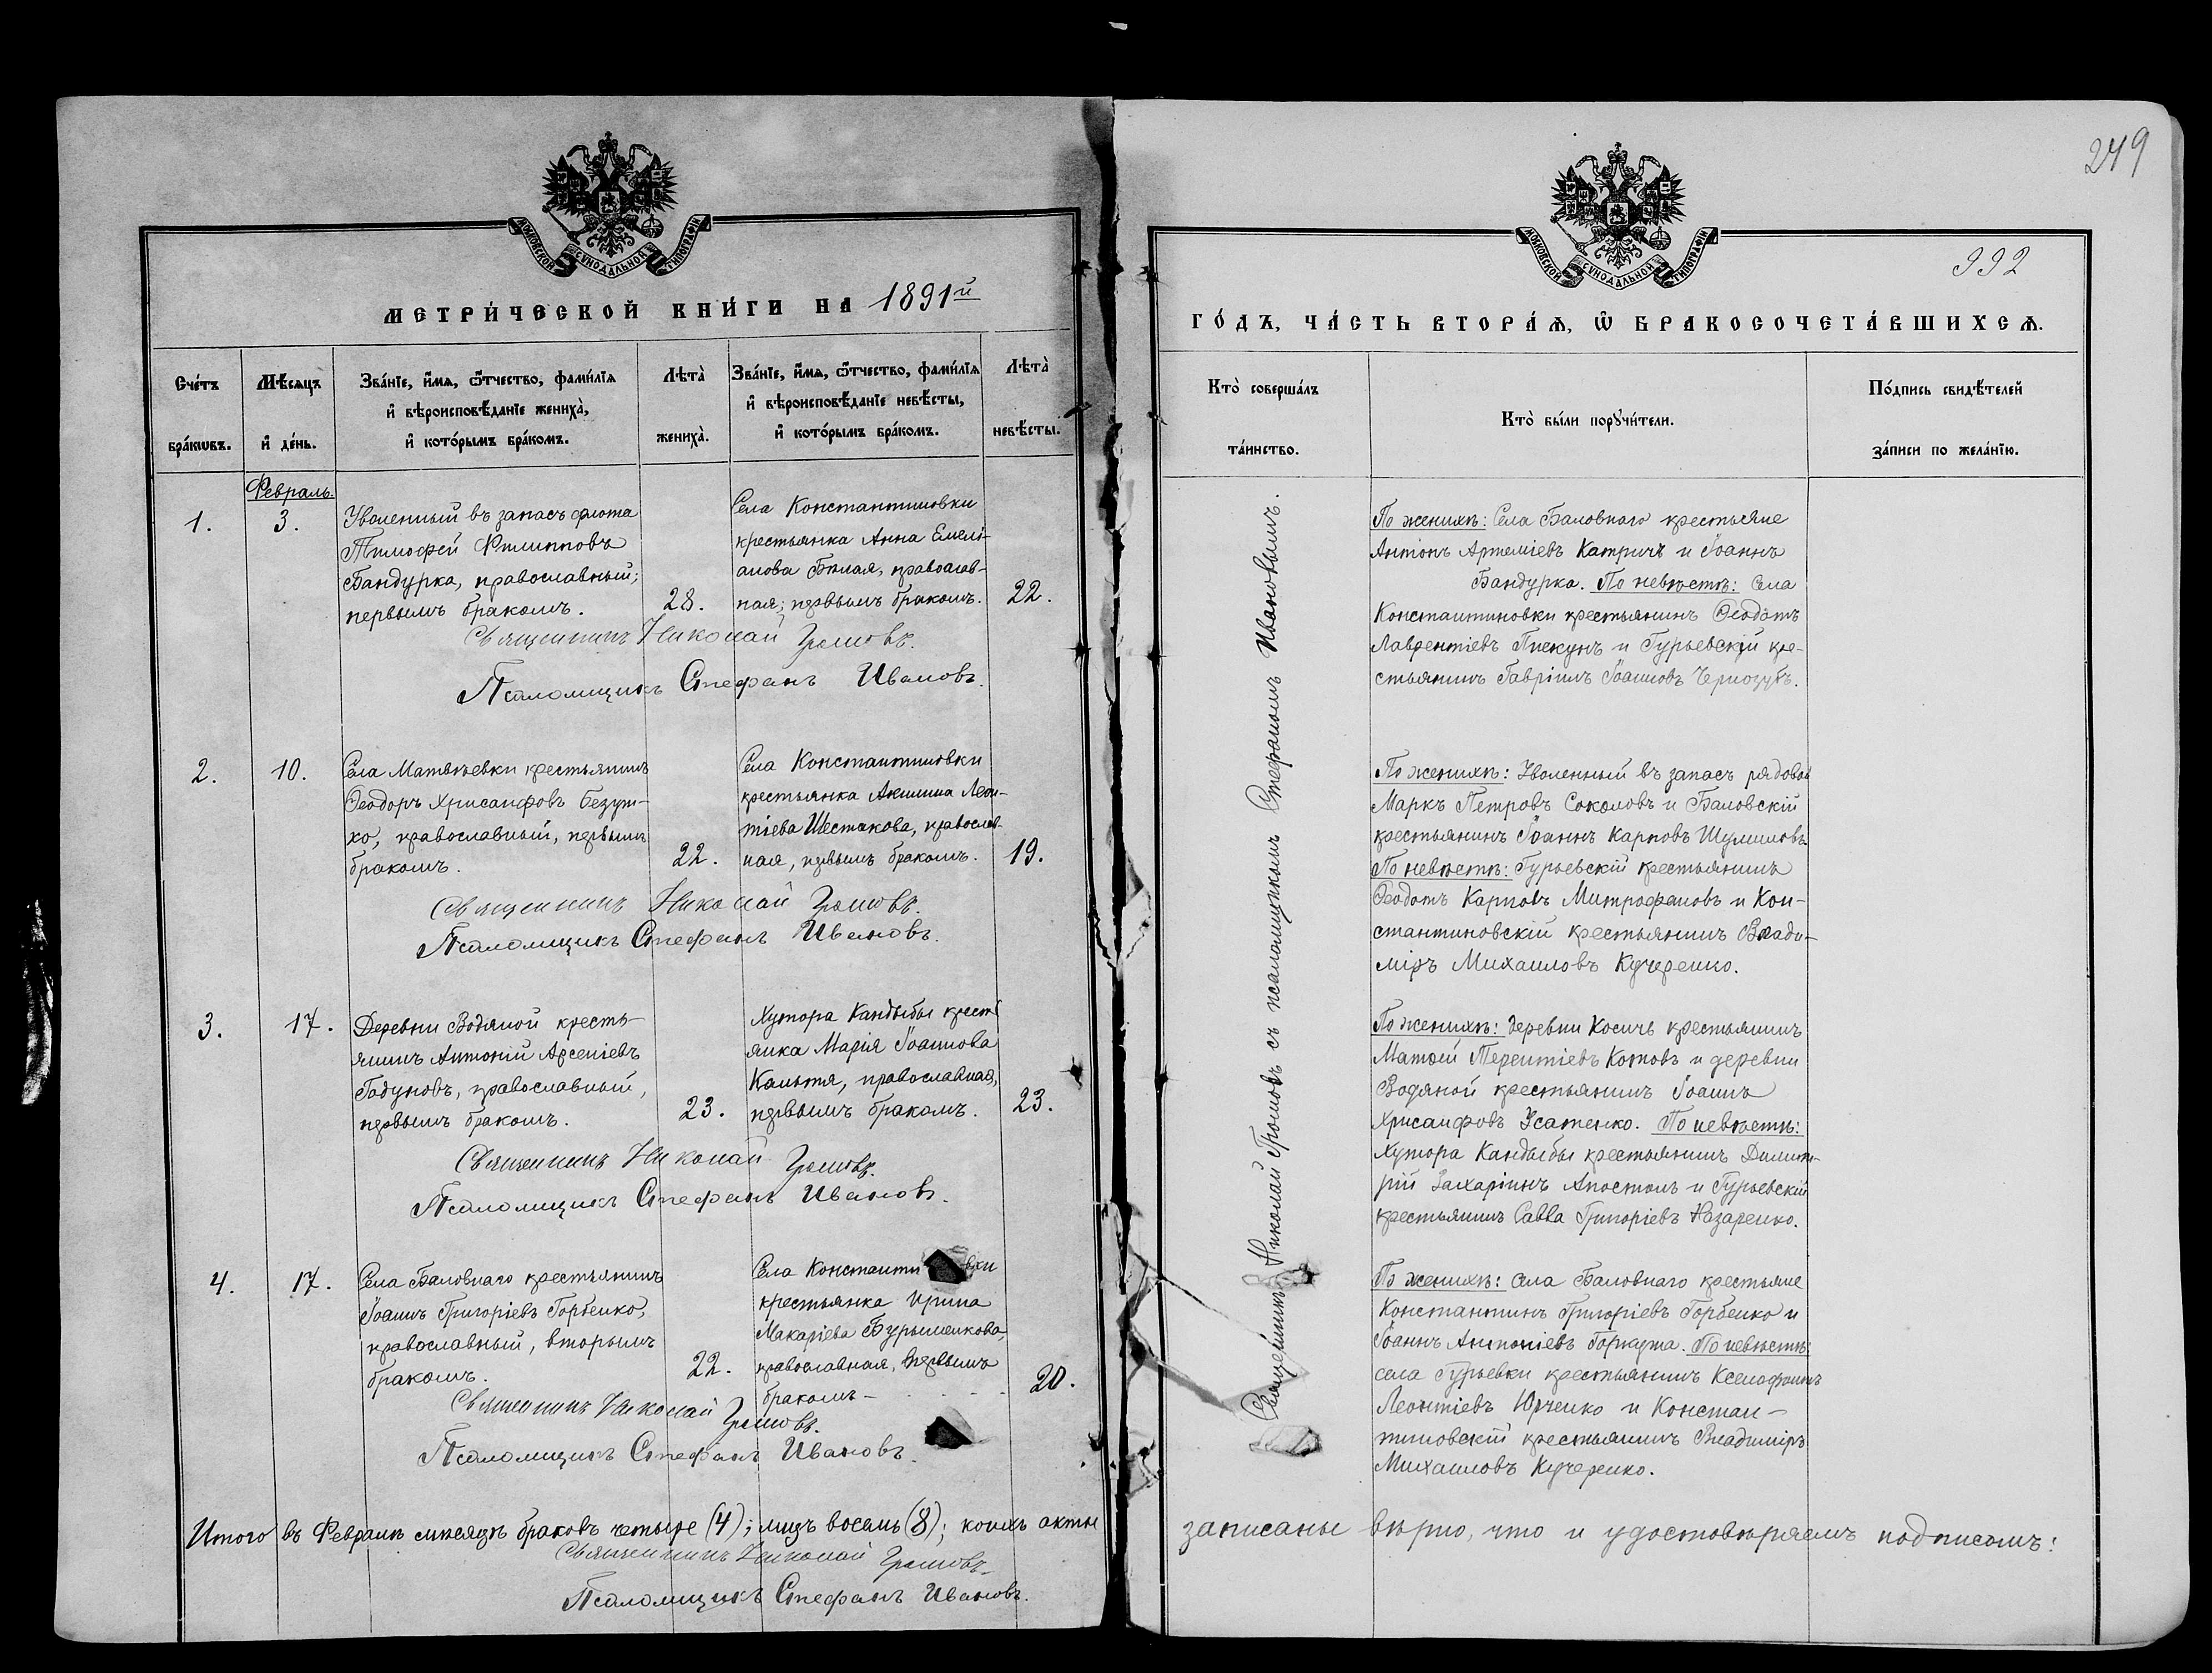 249
МОСКОВСКОЙ СѴНОДАЛЬНОЙ ТИПОГРАФІИ
МЕТРИ́ЧЕСКОЙ КНИ́ГИ НА 1891й
Сче́тъ бра́кѡвъ.
Мѣ́сяцъ и҆ де́нь.
Зва́нїе, и҆́мѧ, ѻ҆́тчество, фами́лїѧ
и҆ вѣроисповѣ́данїе жениха̀,
и҆ кото́рымъ бра́комъ.
Лѣта̀
жениха̀.
Зва́нїе, и҆́мѧ, ѻ҆́тчество, фами́лїѧ
и҆ вѣроисповѣ́данїе невѣ́сты,
и҆ кото́рымъ бра́комъ.
Лѣта̀
невѣ́сты.
Февраль.
1.
3.
Уволенный въ запасъ флота
Тимофей Филипповъ
Бандурка, православный;
первымъ бракомъ.
28.
Села Константиновки
крестьянка Анна Емелі-
анова Бѣлая, православ-
ная; первымъ бракомъ.
22.
Священникъ Николай Громовъ.
Псаломщикъ Стефанъ Ивановъ.
2.
10.
Села Матвѣевки крестьянинъ
Ѳеодоръ Хрисанфовъ Безум-
ко, православный, первымъ
бракомъ.
22.
Села Константиновки
крестьянка Акилина Леон-
тіева Шестакова, православ-
ная, первымъ бракомъ.
19.
Священникъ Николай Громовъ.
Псаломщикъ Стефанъ Ивановъ.
3.
17.
Деревни Водяной кресть-
янинъ Антоній Арсеніевъ
Годуновъ, православный,
первымъ бракомъ.
23.
Хутора Кандыбы кресть
янка Марія Іоаннова
православная,
первымъ бракомъ.
23.
Священникъ Николай Громовъ.
Псаломщикъ Стефанъ Ивановъ.
4.
17.
Села Баловнаго крестьянинъ
Іоаннъ Григоріевъ Горбенко,
православный, вторымъ
бракомъ.
22.
Села Константи вки
крестьянка Ирина
Макаріева Бурыменкова,
православная, первымъ
бракомъ —
20.
Священникъ Николай Громовъ.
Псаломщикъ Стефанъ Ивановъ.
Итого въ Февралѣ мѣсяцѣ браковъ четыре (4); лицъ восемь (8); коихъ акты
Священникъ Николай Громовъ.
Псаломщикъ Стефанъ Ивановъ.
МОСКОВСКОЙ СѴНОДАЛЬНОЙ ТИПОГРАФІИ
992
ГО́ДЪ, ЧА́СТЬ ВТОРА́Ѧ, Ѡ҆ БРАКОСОЧЕТА́ВШИХСѦ.
Кто̀ соверша́лъ
та́инство.
Кто̀ бы́ли порꙋчи́тели.
По́дпись свидѣ́телей
за́писи по жела́нїю.
Священникъ Николай Громовъ съ псаломщикомъ Стефаномъ Ивановымъ.
По женихѣ: Села Баловнаго крестьяне
Антонъ Артеміевъ Катричъ и Іоаннъ
Бандурка. По невѣстѣ: Села
Константиновки крестьянинъ Ѳеодотъ
Лаврентіевъ Пискунъ и Гурьевскій кре-
стьянинъ Гавріилъ Іоанновъ Чернозубъ.
По женихѣ: Уволенный въ запасъ рядовой
Маркъ Петровъ Соколовъ и Баловскій
крестьянинъ Іоаннъ Карповъ Шумиловъ.
По невѣстѣ: Гурьевскій крестьянинъ
Ѳеодотъ Карповъ Митрофановъ и Кон-
стантиновскій крестьянинъ Влади-
міръ Михаиловъ Кучеренко.
По женихѣ: деревни Косичъ крестьянинъ
Матѳій Терентіевъ Котовъ и деревни
Водяной крестьянинъ Іоаннъ
Хрисанфовъ Усатенко. По невѣстѣ:
Хутора Кандыбы крестьянинъ Димит-
рій Захаріинъ Апостолъ и Гурьевскій
крестьянинъ Савва Григоріевъ Назаренко.
По женихѣ: Села Баловнаго крестьяне
Константинъ Григоріевъ Горбенко и
Іоаннъ Антоніевъ По невѣстѣ:
села Гурьевки крестьянинъ Ксенофонтъ
Леонтіевъ Юрченко и Констан-
тиновскій крестьянинъ Владиміръ
Михаиловъ Кучеренко.
записаны вѣрно, что и удостовѣряемъ подписомъ: